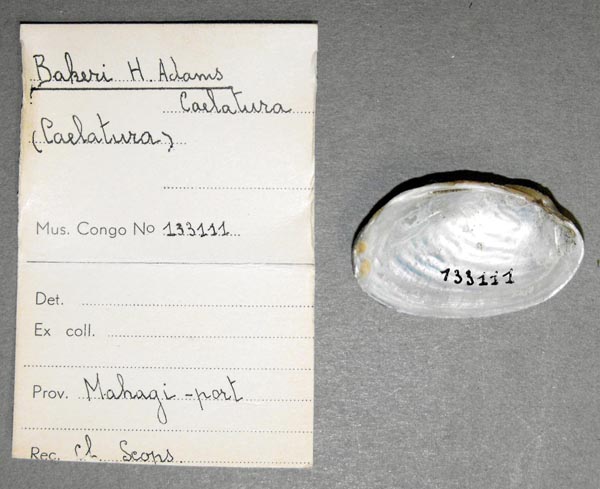 Bakeri H. Adams
Caelatura
(Caelatura)
Mus. Congo No 133111
Det.
Ex coll.
Prov. Mahagi-port
Rec. Ch. Scops
133111